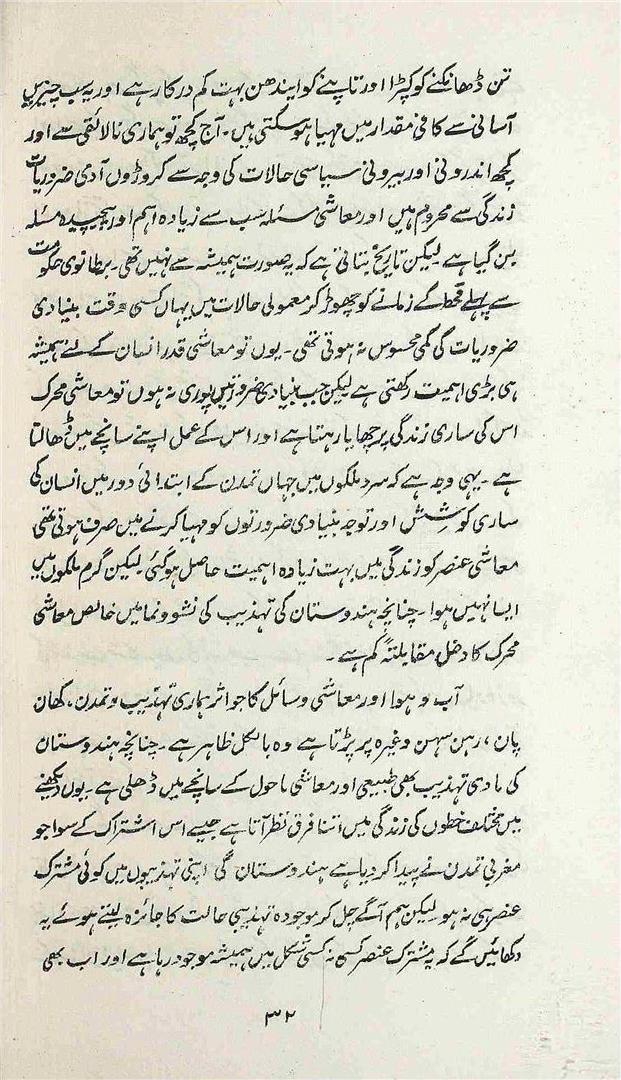 تن ڈھانکنے کو کپڑا اور تاپنے کو ایندھن بہت کم درکار ہے اور یہ سب چیزیں
آسانی سے کافی مقدار میں مہیا ہو سکتی ہیں۔ آج کچھ تو ہماری نالائقی سے اور
کچھ اندرونی اور بیرونی سیاسی حالات کی وجہ سے کروڑوں آدمی ضروریات
زندگی سے محروم ہیں اور معاشی مسئلہ سب سے زیادہ اہم اور پیچیدہ مسئلہ
بن گیا ہے۔ لیکن تاریخ بتاتی ہے کہ یہ صورت ہمیشہ سے نہیں تھی۔ برطانوی حکومت
سے پہلے قحط کے زمانے کو چھوڑ کر معمولی حالات میں یہاں کسی وقت بنیادی
ضروریات کی کمی محسوس نہ ہوتی تھی۔ یوں تو معاشی قدر انسان کے لئے ہمیشہ
ہی بڑی اہمیت رکھتی ہے لیکن جب بنیادی ضرورتیں پوری نہ ہوں تو معاشی محرک
اس کی ساری زندگی پر چھایا رہتا ہے اور اس کے عمل اپنے سانچے میں ڈھالتا
ہے۔ یہی وجہ ہے کہ سرد ملکوں میں جہاں تمدن کے ابتدائی دور میں انسان کی
ساری کوشش اور توجہ بنیادی ضرورتوں کو مہیا کرنے میں صرف ہوتی تھی
معاشی عنصر کو زندگی میں بہت زیادہ اہمیت حاصل ہو گئی لیکن گرم ملکوں میں
ایسا نہیں ہوا۔ چنانچہ ہندوستان کی تہذیب کی نشو و نما میں خالص معاشی
محرک کا دخل مقابلتہً کم ہے۔
آب و ہوا اور معاشی وسائل کا جو اثر ہماری تہذیب و تمدن، کھان
پان، رہن سہن وغیرہ پر پڑتا ہے وہ بالکل ظاہر ہے۔ چنانچہ ہندوستان
کی مادی تہذیب بھی طبیعی اور معاشی ماحول کے سانچے میں ڈھلی ہے۔ یوں دیکھنے
میں مختلف خطوں کی زندگی میں اتنا فرق نظر آتا ہے جیسے اس اشتراک کے سوا جو
مغربی تمدن نے پیدا کر دیا ہے ہندوستان کی اپنی تہذیبوں میں کوئی مشترک
عنصر ہی نہ ہو لیکن ہم آگے چل کر موجودہ تہذیبی حالت کا جائزہ لیتے ہوئے یہ
دکھائیں گے کہ یہ مشترک عنصر کسی نہ کسی شکل میں ہمیشہ موجود رہا ہے اور اب بھی
۳۲